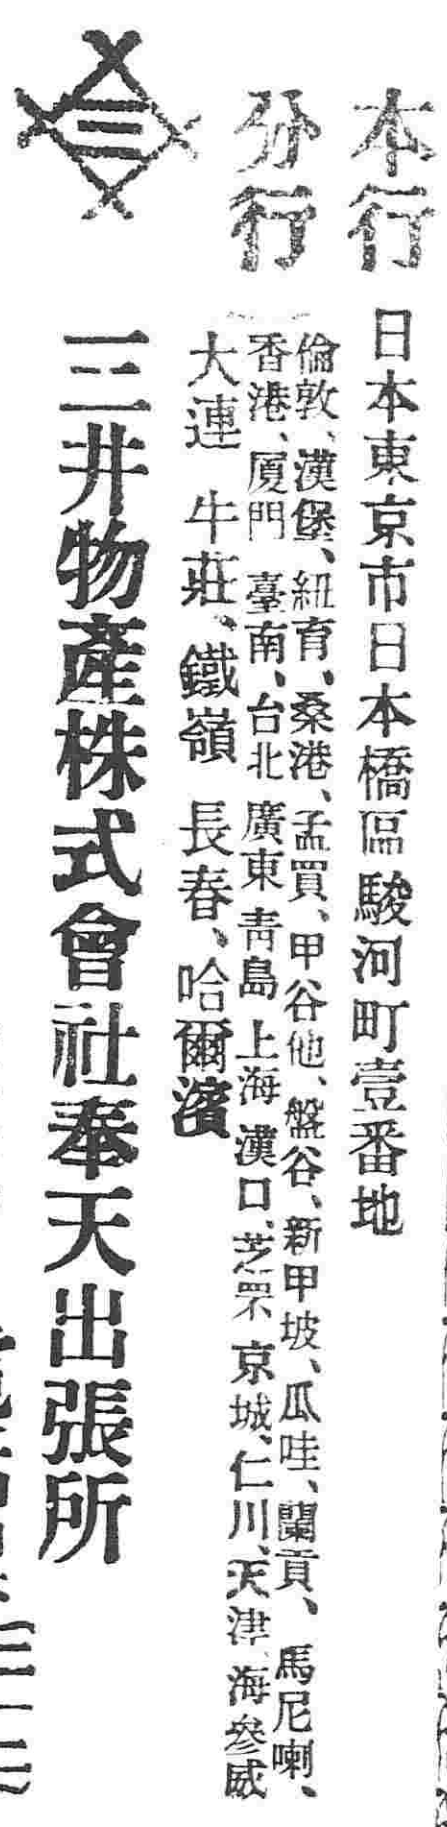 本行 日本東京市日本橋區駿河町壹番地
分行
倫敦、漢堡、紐育、桑港、孟買、甲谷他、盤谷、新甲坡、瓜哇、蘭貢、馬尼喇、
香港、厦門 臺南、台北 廣東 靑島 上海 漢口、芝罘 京城、仁川、天津、海參威
大連 牛莊、鐵嶺 長春、哈爾濱
三井物產株式會社奉天出張所